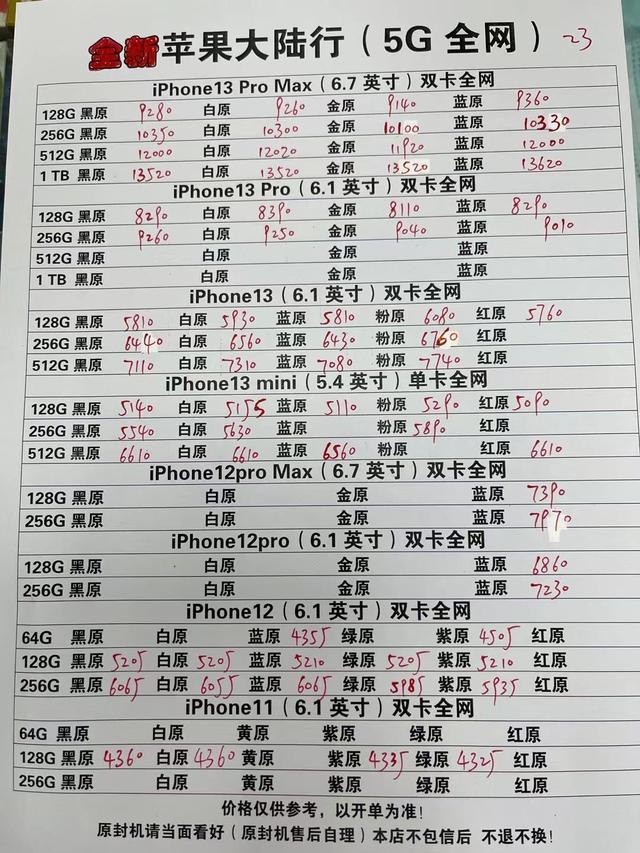 全新苹果大陆行(5G 全网) 23
iPhone13 Pro Max(6.7 英寸)双卡全网
128G 黑原 9280 白原 9260 金原 9140 蓝原 9360
256G 黑原 10350 白原 10300 金原 10100 蓝原 10330
512G 黑原 12000 白原 12020 金原 11920 蓝原 12000
1 TB 黑原 13520 白原 13520 金原 13520 蓝原 13620
iPhone13 Pro(6.1 英寸)双卡全网
128G 黑原 8290 白原 8390 金原 8110 蓝原 8290
256G 黑原 9260 白原 9250 金原 9040 蓝原 9010
512G 黑原 白原 金原 蓝原
1 TB 黑原 白原 金原 蓝原
iPhone13(6.1 英寸)双卡全网
128G 黑原 5810 白原 5930 蓝原 5810 粉原 6080 红原 5760
256G 黑原 6440 白原 6560 蓝原 6430 粉原 6760 红原
512G 黑原 7110 白原 7310 蓝原 7080 粉原 7740 红原
iPhone13 mini(5.4 英寸)单卡全网
128G 黑原 5140 白原 5155 蓝原 5110 粉原 5290 红原 5090
256G 黑原 5540 白原 5630 蓝原 粉原 5890 红原
512G 黑原 6610 白原 6610 蓝原 6560 粉原 红原 6610
iPhone12pro Max(6.7 英寸)双卡全网
128G 黑原 白原 金原 蓝原 7390
256G 黑原 白原 金原 蓝原 7970
iPhone12pro(6.1 英寸)双卡全网
128G 黑原 白原 金原 蓝原 6860
256G 黑原 白原 金原 蓝原 7230
iPhone12(6.1 英寸)双卡全网
64G 黑原 白原 蓝原 4355 绿原 紫原 4505 红原
128G 黑原 5205 白原 5205 蓝原 5210 绿原 5205 紫原 5210 红原
256G 黑原 6065 白原 6055 蓝原 6065 绿原 5985 紫原 5935 红原
iPhone11(6.1 英寸)双卡全网
64G 黑原 白原 黄原 紫原 绿原 红原
128G 黑原 4360 白原 4360 黄原 紫原 4335 绿原 4325 红原
256G 黑原 白原 黄原 紫原 绿原 红原
价格仅供参考,以开单为准!
原封机请当面看好(原封机售后自理)本店不包信后 不退不换!